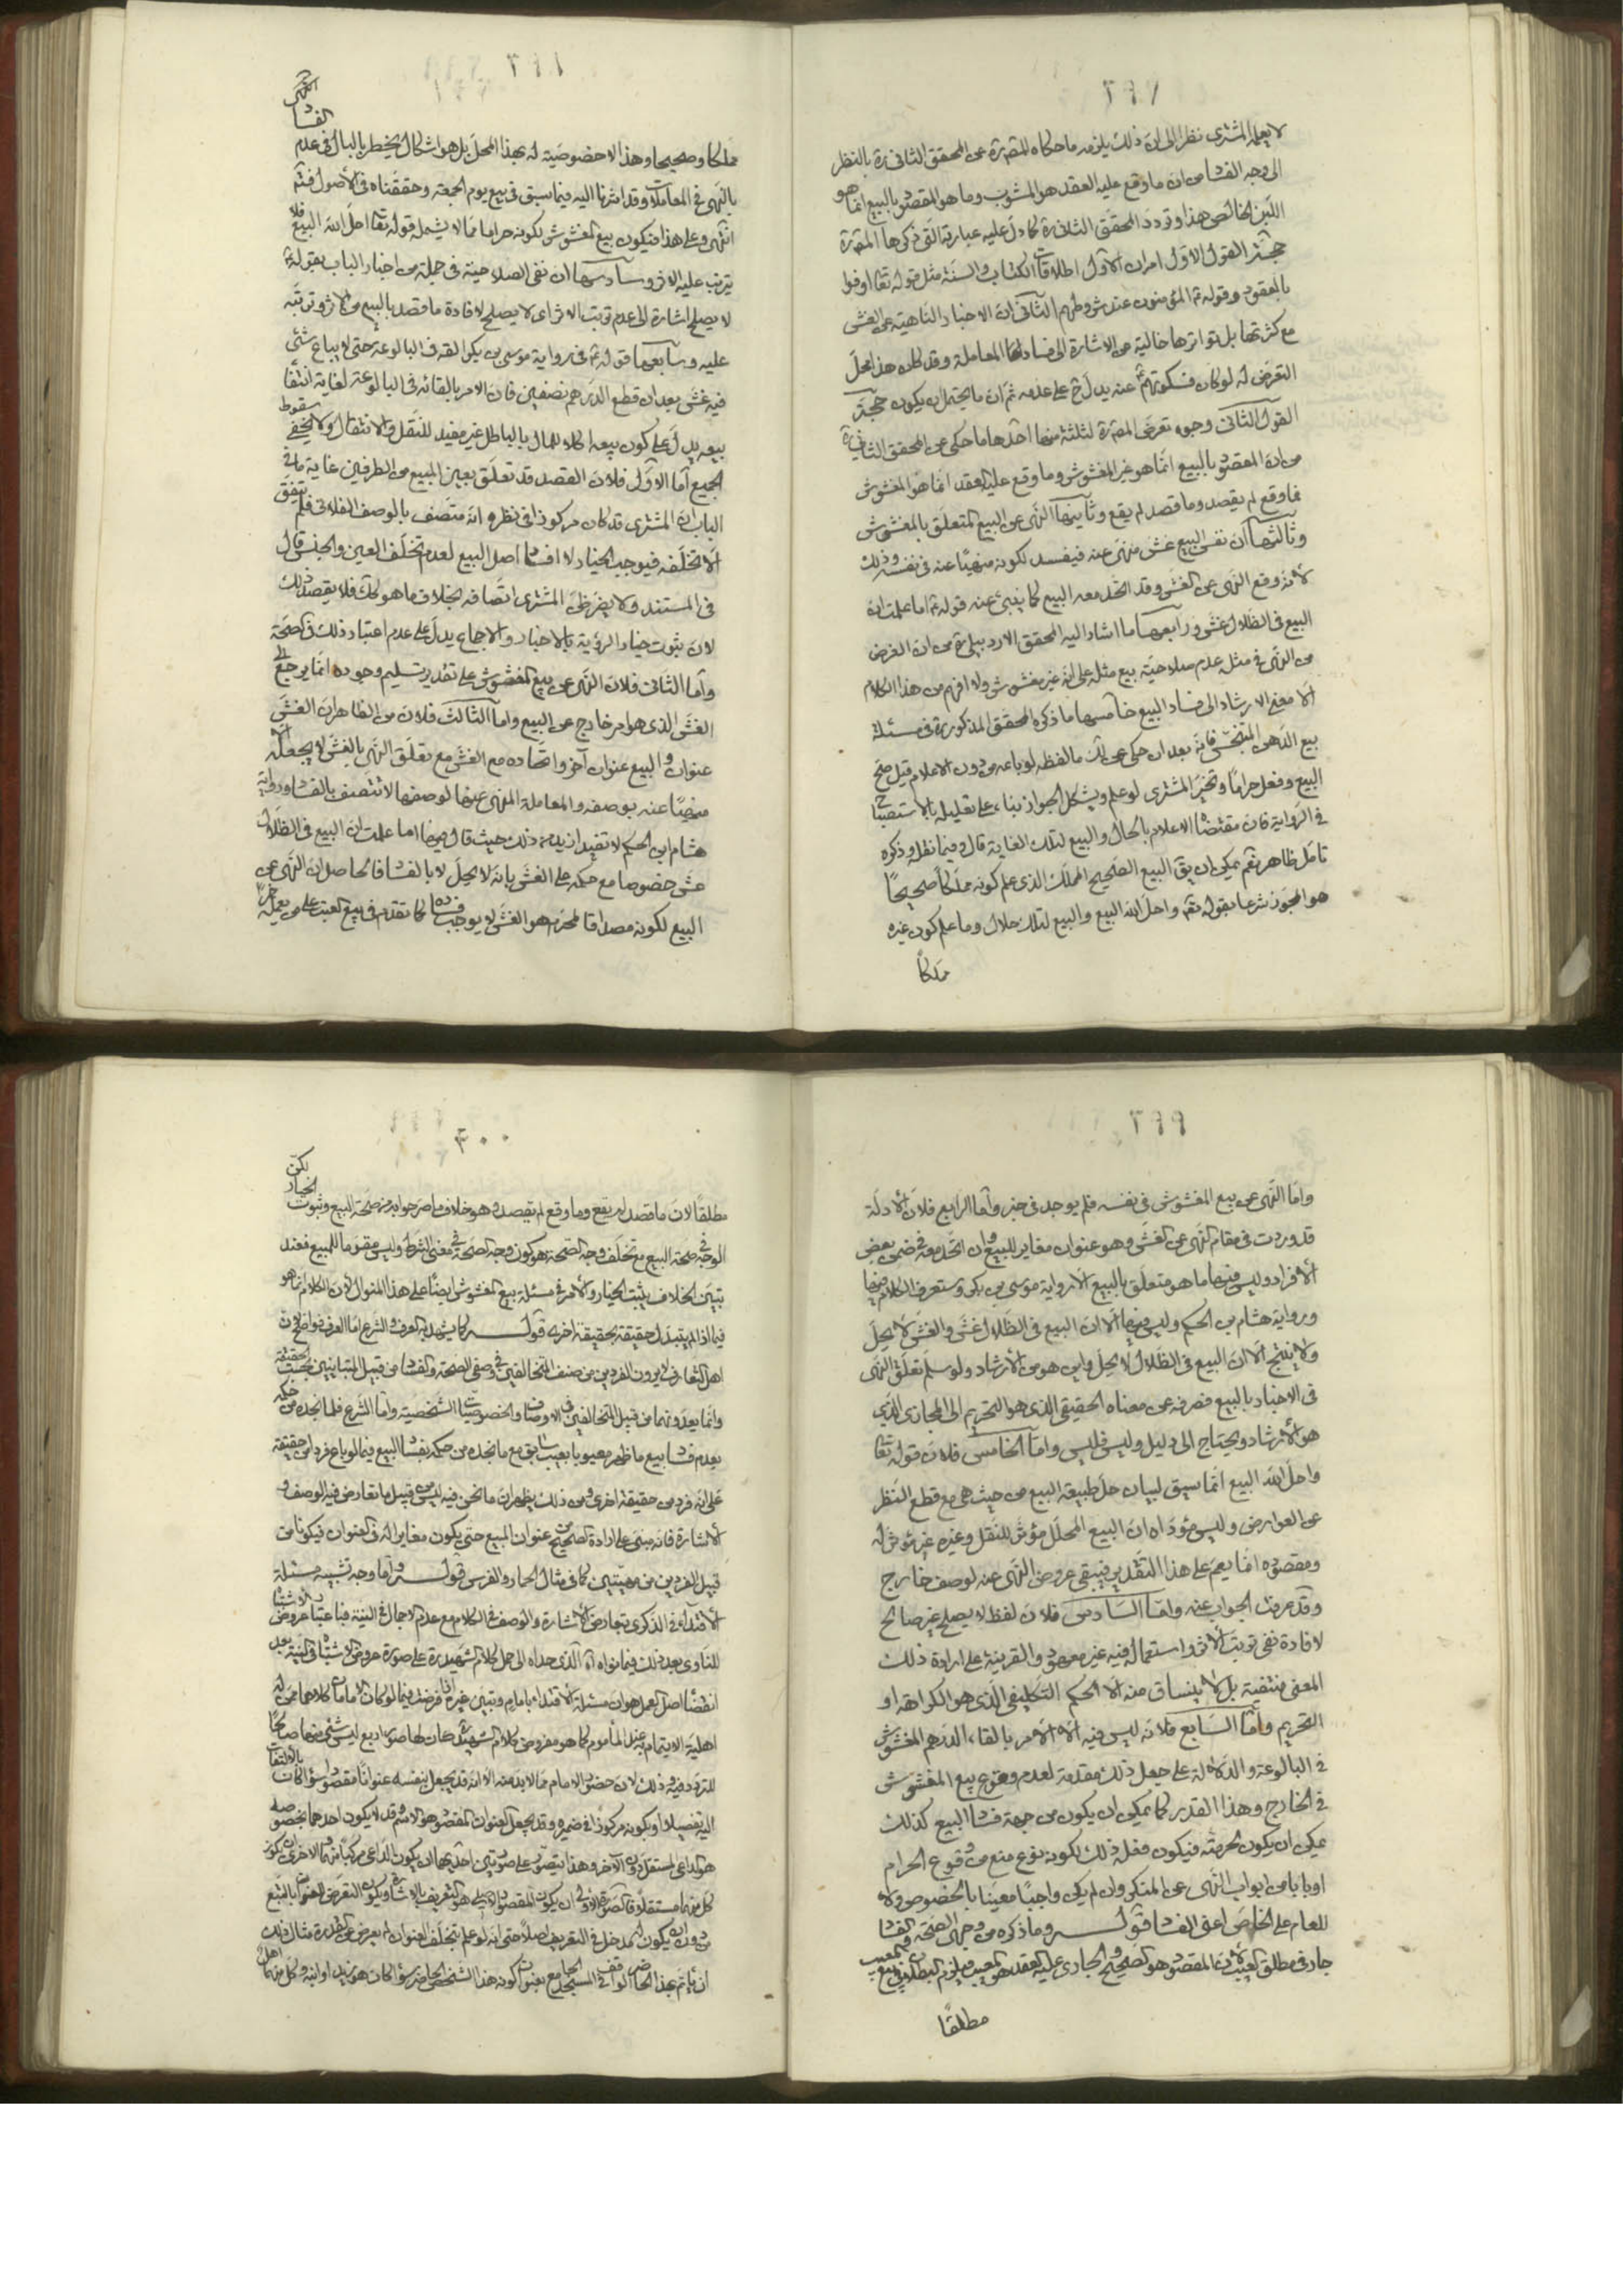 ٢٩٧
لا يعلمه المشترى نظرا الى ان ذلك يلزمه ما حكاه المصره عن المحقق الثانى ره بالنظر
الى وجه الفساد من ان ما وقع عليه العقد هو المشوب وما هو المقصود بالبيع انما هو
اللبن الخالص هذا وتردد المحقق الثانى ره كما دل عليه عبارته التى ذكرها المصره
حجة القول الاول امران الأول اطلاقات الكتاب والسنة مثل قوله تعا اوفوا
بالعقود وقوله ع المؤمنون عند شروطهم الثانى ان الاخبار الناهية عن الغش
مع كثرتها بل تواترها خالية من الاشارة الى فساد المعاملة وقد كان هذا محل
التعرض له لو كان فسكوتهم عنه يدل على عدمه ثم ان ما يحتمل ان يكون حجة
القول الثانى وجوه تعرض المصره لثلثة منها احدها ما حكى عن المحقق الثانى ره
من ان المقصود بالبيع انما هو غير المغشوش وما وقع عليه العقد انما هو المغشوش
فما وقع لم يقصد وما قصد لم يقع وثانيها النهى عن البيع المتعلق بالمغشوش
وثالثها ان نفس البيع غش منهى عنه فيفسد لكونه منهيا عنه فى نفسه وذلك
لأنه وقع النهى عن الغش وقد اتحد معه البيع كما ينبئ عنه قوله ع اما علمت ان
البيع فى الظلال غش ورابعها ما اشار اليه المحقق الاردبيلى ره من ان الغرض
من النهى فى مثله عدم صلاحية بيع مثله على انه غير مغشوش ولا افهم من هذا الكلام
الا معنى الارشاد الى فساد البيع خامسها ما ذكره المحقق المذكور ره فى مسئلة
بيع الدهن المتنجس فانه بعد ان حكى عن لك ما لفظه لو باعه من دون الاعلام قيل صح
البيع وفعل حراما وتخير المشترى لو علم ويشكل الجواز بناء على تعليله بالاستصباح
فى الرواية فان مقتضاه الاعلام بالحال والبيع لتلك الغاية قال وفيما نقل وذكره
تامل ظاهر نعم يمكن ان يق البيع الصحيح المملك الذى علم كونه مملكا صحيحا
هو المجوز شرعا بقوله تعه واحل الله البيع والبيع لتلك حلال وما علم كون غيره
مملكا
٢٩٨
مملكا وصحيحا وهذا لا خصوصية له بهذا المحل بل هو اشكال يخطر بالبال فى عدم الفساد
بالنهى فى المعاملات وقد اشرنا اليه فيما سبق فى بيع يوم الجمعة وحققناه فى الأصول فتم انتهى
انتهى وعلى هذا فيكون بيع المغشوش لكونه حراما مما لا يشمله قوله تعا احل الله البيع فلا
يترتب عليه الاثر وسادسها ان نفى الصلاحية فى جملة من اخبار الباب بقوله ع
لا يصلح اشارة الى عدم ترتب الاثر اى لا يصلح لافادة ما قصد بالبيع من الاثر وترتبه
عليه وسابعها قوله ع فى رواية موسى بن بكر القه فى البالوعة حتى لا يباع شئ
فيه غش بعد ان قطع الدرهم نصفين فان الامر بالقائه فى البالوعة لغاية انتفاء
بيعه يدل على كون بيعه اكلا للمال بالباطل غير مفيد للنقل والانتقال ولا يخفى سقوط
الجميع اما الاول فلان القصد قد تعلق بعين المبيع من الطرفين غاية ما فى
الباب ان المشترى قد كان مركوزا فى نظره انه متصف بالوصف الفلانى فلم يتفق
الا تخلفه فيوجب الخيار لا افساد اصل البيع لعدم تخلف العين والجنس قال
فى المستند ولا يضر ظن المشترى اتصافه بخلاف ما هو كك فلا يقصد ذلك
لان ثبوت خيار الرؤية بالاخبار والاجماع يدل على عدم اعتبار ذلك فى الصحة
واما الثانى فلان النهى عن بيع المغشوش على تقدير تسليم وجوده انما يرجع الى
الغش الذى هو امر خارج عن البيع واما الثالث فلان من الظاهر ان الغش
عنوان والبيع عنوان آخر واتحاده مع الغش مع تعلق النهى بالغش لا يجعله
منهيا عنه بوصفه والمعاملة المنهى عنها لوصفها لا تتصف بالفساد ورواية
هشام بن الحكم لا تفيد ازيد من ذلك حيث قال فيها اما علمت ان البيع فى الظلال
غش خصوصا مع حكمه على الغش بانه لا يحل لا بالفساد فالحاصل ان النهى عن
البيع لكونه مصداقا لمحرم هو الغش لا يوجب فساده كما تقدم فى بيع العنب على من يعمله خمرا
٢٩٩
واما النهى عن بيع المغشوش فى نفسه فلم يوجد فى خبر واما الرابع فلان الأدلة
قد وردت فى مقام النهى عن الغش وهو عنوان مغاير للبيع وان اتحد معه فى ضمن بعض
الأفراد وليس فيها ما هو متعلق بالبيع الا رواية موسى بن بكر وستعرف الكلام فيها
ورواية هشام بن الحكم وليس فيها الا ان البيع فى الظلال غش والغش لا يحل
ولا ينتج الا ان البيع فى الظلال لا يحل واين هو من الأرشاد ولو سلم تعلق النهى
فى الاخبار بالبيع فصرفه عن معناه الحقيقى الذى هو التحريم الى المجازى الذى
هو الأرشاد ويحتاج الى دليل وليس فليس واما الخامس فلان قوله تعا
واحل الله البيع انما سيق لبيان حل طبيعة البيع من حيث هى مع قطع النظر
عن العوارض وليس مؤداه ان البيع المحلل مؤثر للنقل وغيره غير مؤثر له
ومقصوده انما يعم على هذا التقدير فيبقى عروض النهى عنه لوصف خارج
وقد عرفت الجواب عنه واما السادس فلان لفظ لا يصلح غير صالح
لافادة نفى ترتب الأثر واستعماله فيه غير معهود والقرينة على ارادة ذلك
المعنى منتفية بل لا ينساق منه الا الحكم التكليفى الذى هو الكراهة او
التحريم واما السابع فلانه ليس فيه الا الأمر بالقاء الدرهم المغشوش
فى البالوعة والدلالة على جعل ذلك مقدمة لعدم وقوع بيع المغشوش
فى الخارج وهذا القدر كما يمكن ان يكون من جهة فساد البيع كذلك
يمكن ان يكون لحرمته فيكون فعله ذلك لكونه نوع منع من وقوع الحرام
او بابا من ابواب النهى عن المنكر وان لم يكن واجبا معينا بالخصوص ولا دلالة
للعام على الخاص اعنى الفساد قوله وما ذكره من وجهى الصحة والفساد
جار فى مطلق العيب لان المقصود هو الصحيح والجارى عليه العقد هو المعيب فيلزم البطلان فى بيع المعيب
مطلقا
٣٠٠
مطلقا لان ما قصد لم يقع وما وقع لم يقصد وهو خلاف ما صرحوا به من صحة البيع وثبوت الخيار لكن
الوجه فى صحة البيع مع تخلف وجه الصحة هو كون وجه الصحة فى معنى الشرط وليس مقوما للمبيع فعند
تبين الخلاف يثبت الخيار والأمر فى مسئلة بيع المغشوش ايضا على هذا المنوال لان الكلام انما هو
فيما اذا لم يتبدل حقيقة بحقيقة اخرى قوله كما يشهد به العرف والشرع اما العرف فواضح لان
اهل التعارف لا يرون الفردين من صنف المتخالفين فى وصفى الصحة والفساد من قبيل المتباينين بحسب الحقيقة
وانما يعدونهما من قبيل المتخالفين فى الاوصاف والخصوصيات الشخصية واما الشرع فلما نجده من حكمه
بعدم فساد بيع ما ظهر معيوبا بعيب سابق مع ما نجده من حكمه بفساد البيع فيما لو باع فردا من حقيقة
على انه فرد من حقيقة اخرى ومن ذلك يظهر ان ما نحن فيه ليس من قبيل ما تعارض فيه الوصف و
الأشارة فانه مبنى على ارادة الصحيح من عنوان المبيع حتى يكون مغايرا له فى العنوان فيكونا من
قبيل الفردين من مهيتين كما فى مثال الحمار والفرس قوله واما وجه تشبيه مسئلة
الأقتداء فى الذكرى بتعارض الأشارة والوصف فى الكلام مع عدم الاجمال فى النية فباعتبار عروض الاشتباه
للناوى بعد ذلك فيما نواه اه الذى حداه الى حمل كلام الشهيد ره على صورة عروض الاشتباه فى النية بعد